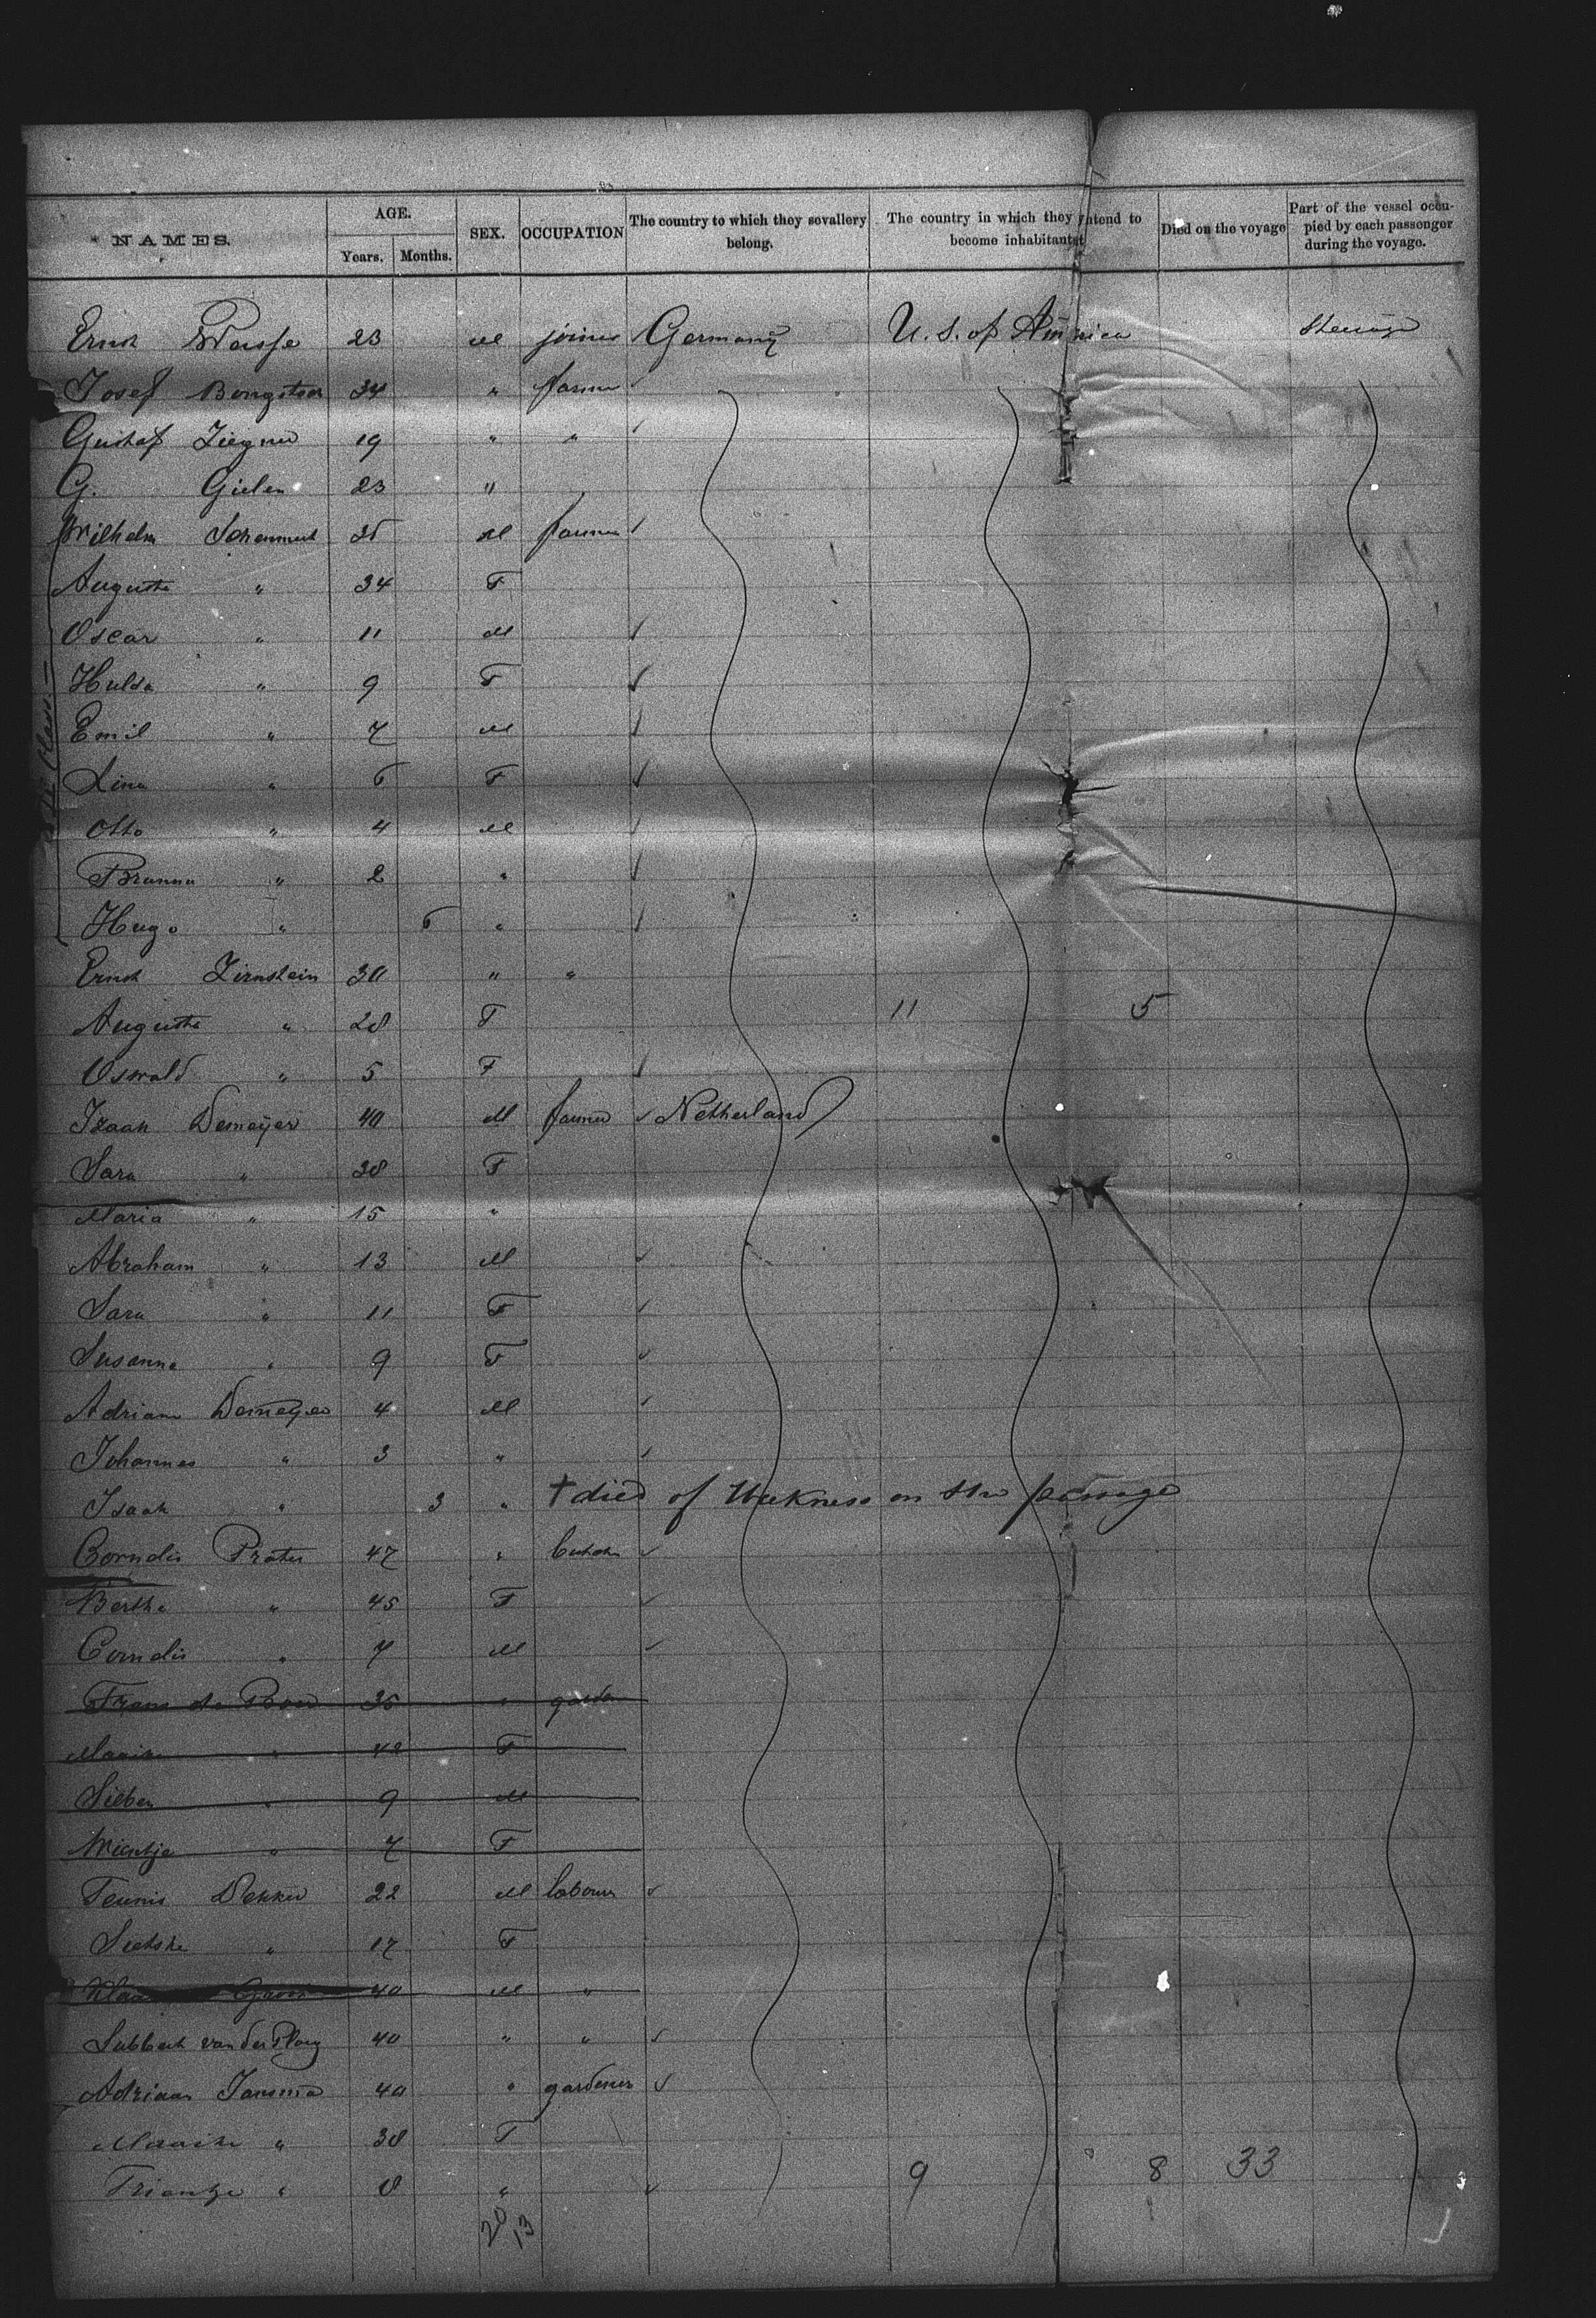 NAMES. AGE. SEX. OCCUPATION The country to which they sevallery belong. The country in which they intend to become inhabitants. Died on the voyage Part of the vessel occupied by each passenger during the voyage.
Years. Months.
Ernst 23 M joiner Germany U. S. of America Steerage
Josef 34 " farmer
Gustaf 19 " "
G. Gielen 23 "
Wilhelm 35 M farmer
Auguste " 34 F
Oscar " 11 M
Hulda " 9 F
Emil " 7 M
Lina " 6 F
Otto " 4 M
" 2 "
Hugo " 6 "
Ernst Zirnstein 30 " "
Auguste " 28 F 11 5
Oswald " 5 F
Izaak Demeijer 40 M farmer Netherland
Sara " 38 F
Maria " 15 "
Abraham " 13 M
Sara " 11 F
Susanna " 9 F
Adriann Demeyer 4 M
Johannes " 3 "
Isaak " 3 " † died of on the passage
Cornelis 47 "
Bertha " 45 F
Cornelis " 7 M
Frans de 35 "
" 42 F
" 9 M
Wientje " 7 F
Teunis Dekker 22 M labourer
" 17 F
40 M "
Lubbert van der Ploeg 40 " "
Adriaan Jansma 40 " gardener
Maaike " 38 F
" 8 " 9 8 33
20 13